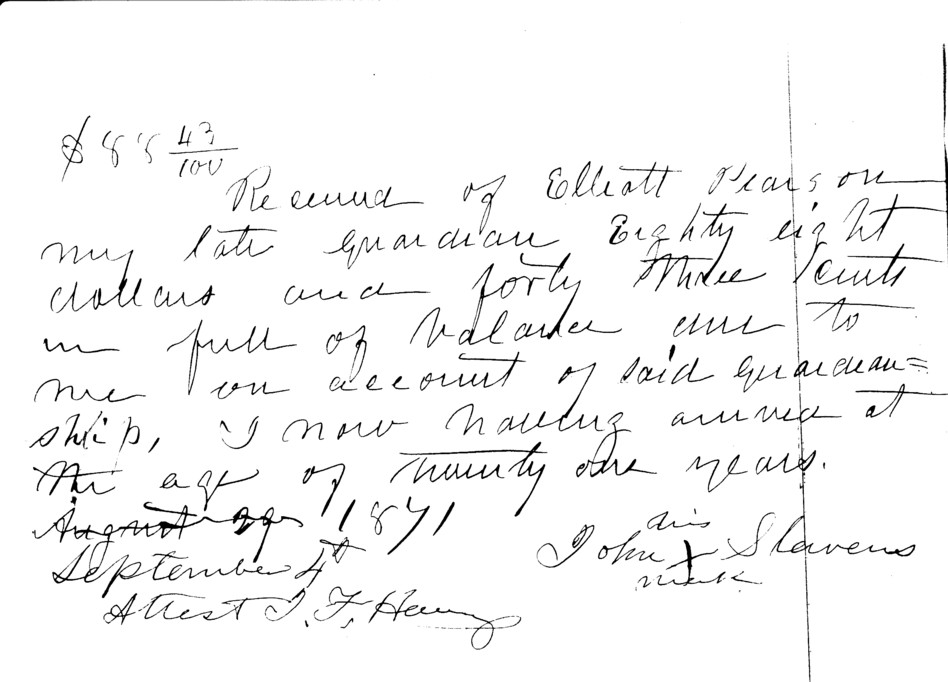 $88 43/100
Received of Elliott Pearson
my late guardian Eighty eight
dollars and forty three cents
in full of balance due to
me on account of said guardian=
ship, I now having arrived at
the age of twenty one years.
August 1871
September 4th
his
John X Slavens
mark
Attest